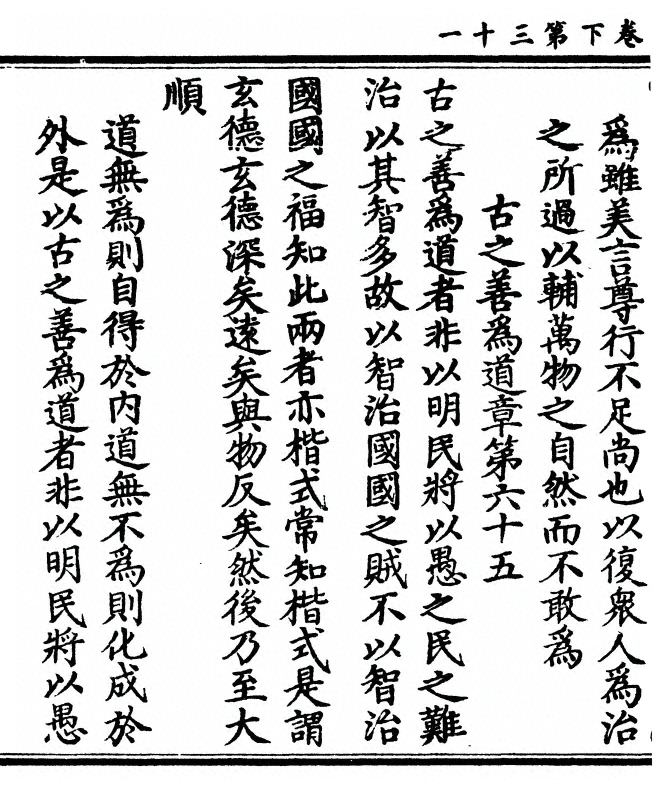 卷下第三十一
為雖美言尊行不足尚也以復眾人為治
之所過以輔萬物之自然而不敢為
古之善為道章第六十五
古之善為道者非以明民將以愚之民之難
治以其智多故以智治國國之賊不以智治
國國之福知此兩者亦楷式常知楷式是謂
玄德玄德深矣遠矣與物反矣然後乃至大
順
道無為則自得於內道無不為則化成於
外是以古之善為道者非以明民將以愚